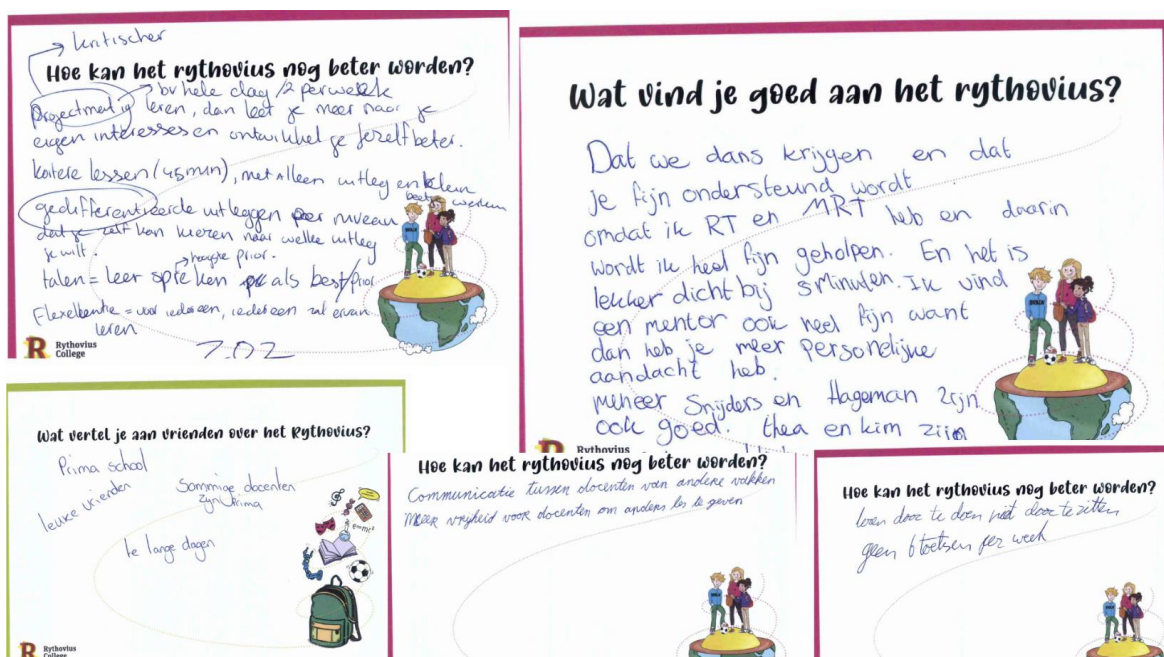 kritischer
Hoe kan het rythovius nog beter worden?
bv hele dag /2 per week
Projectmatig leren, dan leet je meer naar je
eigen interesses en ontwikkel je jezelf beter.
kortere lessen (45min), met alleen uitleg en klein
beetje werken
gedifferentieerde uitleggen per niveau
dat je zelf kan kiezen naar welke uitleg
je wilt.
hoogste prior.
talen = leer spreken als best/prior
= voor iedereen, iedereen zal ervan
leren
Rythovius
College
Wat vind je goed aan het rythovius?
Dat we dans krijgen en dat
je fijn ondersteund wordt
omdat ik RT en MRT heb en daarin
wordt ik heel fijn geholpen. En het is
lekker dicht bij srminulen. Ik vind
een mentor ook heel fijn want
dan heb je meer personelijke
aandacht heb.
meneer Snijders en Hageman zijn
ook goed. thea en kim zijn
Rythovius
Wat vertel je aan vrienden over het Rythovius?
Prima school
leuke vrienden
Sommige docenten
zijn prima
te lange dagen
e=mc²
Rythovius
College
Hoe kan het rythovius nog beter worden?
Communicatie tussen docenten van andere vakken
Meer vrijheid voor docenten om anders les te geven
Hoe kan het rythovius nog beter worden?
leren door te doen niet door te zitten
geen 6 toetsen per week